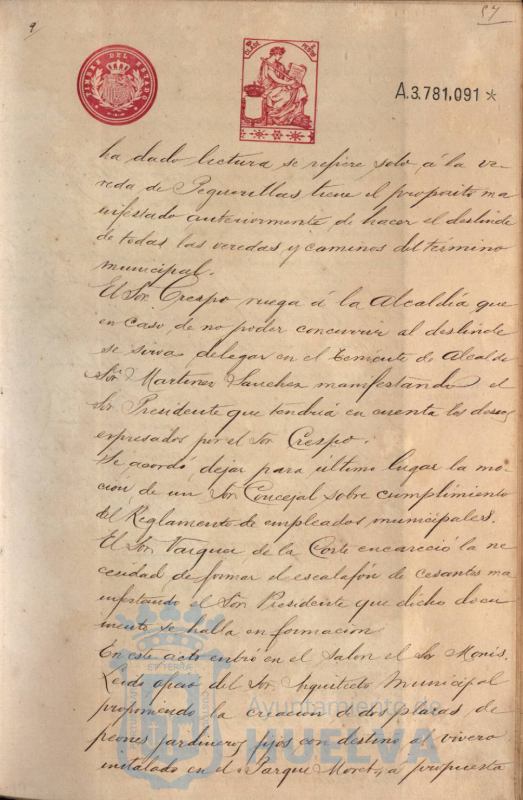 9
57
TIMBRE DEL ESTADO
A.3.781,091*
ha dado lectura se refiere solo á la ve-
reda de Peguerillas tiene el proposito ma
nifestado anteriormente de hacer el deslinde
de todas las veredas y caminos del termino
municipal.
El Sor. Crespo ruega á la Alcaldía que
en caso de no poder concurrir al deslinde
se sirva delegar en el Teniente de Alcalde
Sor. Martinez Sanchez manifestando el
Sr. Presidente que tendría en cuenta los deseos
expresados por el Sor Crespo.
Se acordó dejar para último lugar la mo-
cion de un Sor. Concejal sobre cumplimiento
del Reglamento de empleados municipales.
El Sor. Vargas de la Corte encareció la ne
cesidad de formar el escalafón de cesantes ma
nifestando el Sor. Presidente que dicho docu
mento se halla en formacion
En este acto entró en el Salon el Sor Monis.
Leido oficio del Sor. Arquitecto Municipal
proponiendo la creacion de dos plazas de
peones jardineros fijos con destino al vivero
instalado en el Parque Moret, á propuesta
Ayuntamiento de
HUELVA